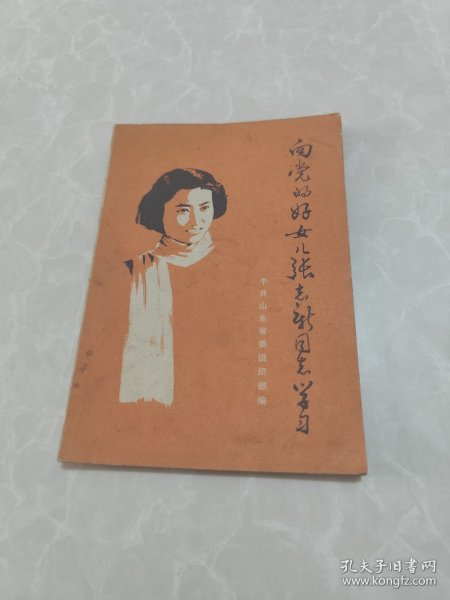 向党的好女儿张志新同志学习
中共山东省委组织部编
孔夫子旧书网
www.kongfz.com